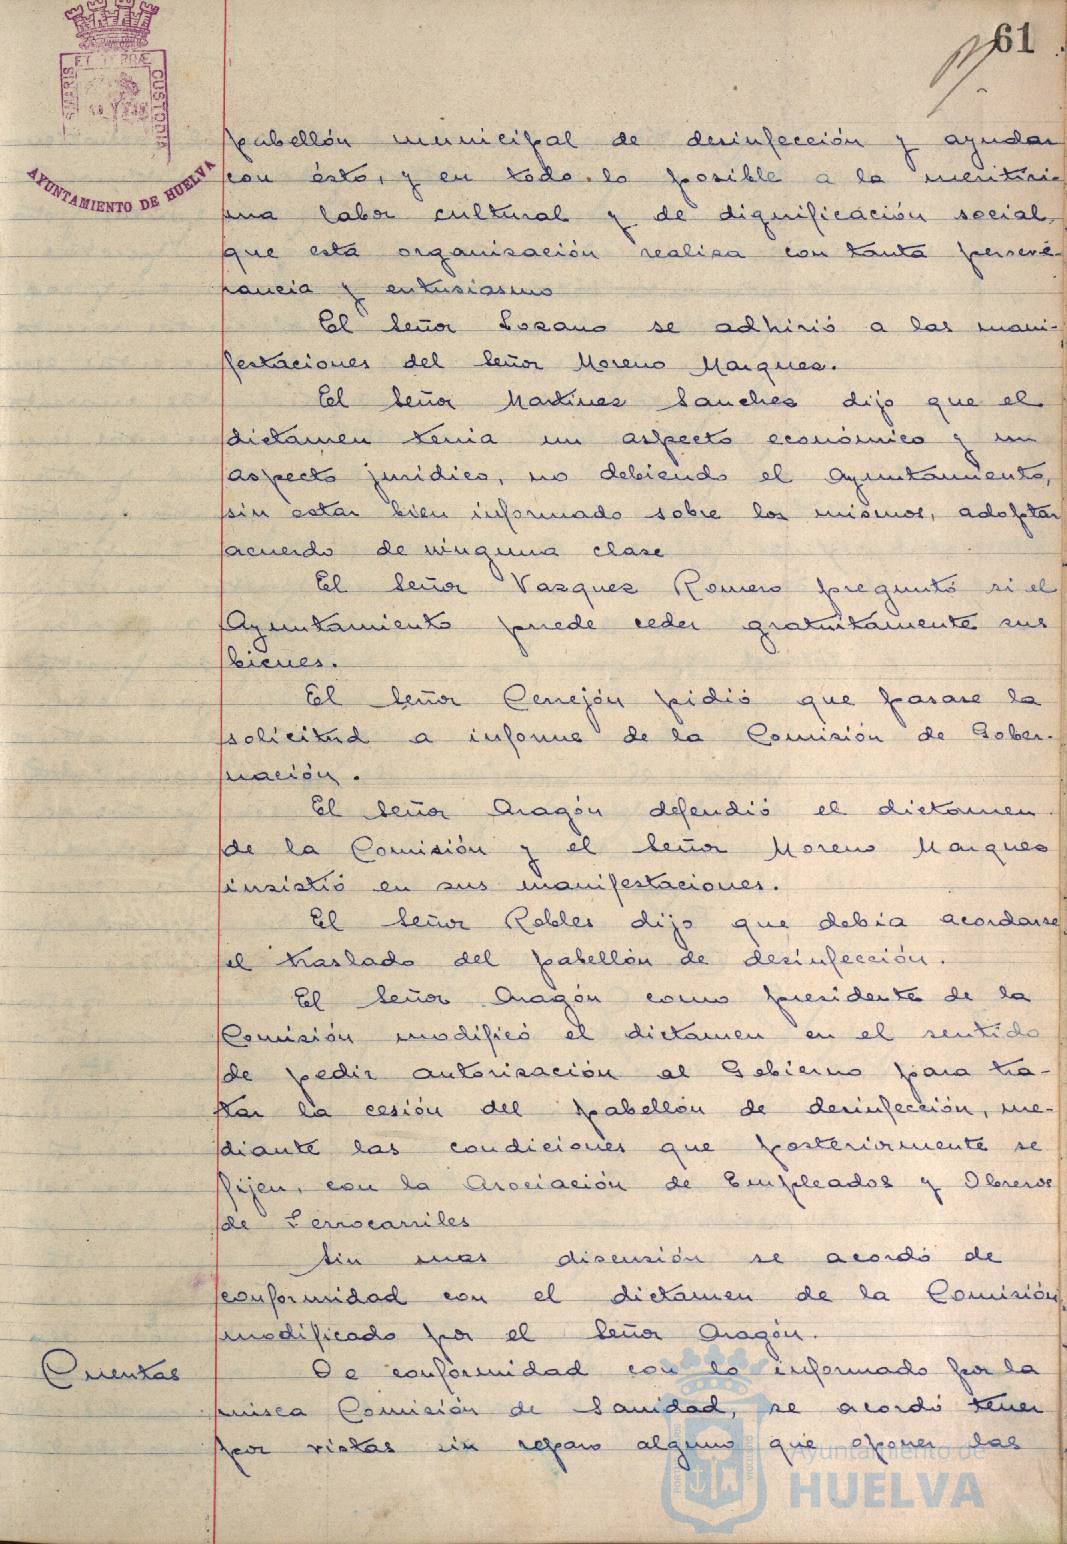 61
ET TERRÆ
MARIS
CUSTODIA
AYUNTAMIENTO DE HUELVA
pabellón municipal de desinfección y ayudar
con ésto, y en todo lo posible a la meritísi-
ma labor cultural y de dignificación social
que esta organisación realisa con tanta perseve-
rancia y entusiasmo
El Señor Lozano se adhirió a las mani-
festaciones del Señor Moreno Marques.
El Señor Martínes Sanches dijo que el
dictamen tenia un aspecto económico y un
aspecto juridico, no debiendo el Ayuntamiento,
sin estar bien informado sobre los mismos, adoptar
acuerdo de ninguna clase
El Señor Vazquez Romero preguntó si el
Ayuntamiento puede ceder gratuitamente sus
bienes.
El Señor Cerrejón pidió que pasase la
solicitud a informe de la Comisión de Gober-
nación.
El Señor Aragón defendió el dictamen
de la Comisión y el Señor Moreno Marques
insistió en sus manifestaciones.
El Señor Robles dijo que debia acordarse
el traslado del pabellón de desinfección.
El Señor Aragón como presidente de la
Comisión modificó el dictamen en el sentido
de pedir autorisación al Gobierno para tra-
tar la cesión del pabellón de desinfección, me-
diante las condiciones que posteriormente se
fijen, con la Asociación de Empleados y Obreros
de Ferrocarriles
Sin mas discusión se acordó de
conformidad con el dictamen de la Comisión
modificado por el Señor Aragón.
Cuentas
De conformidad con lo informado por la
misma Comisión de Sanidad, se acordó tener
por vistas sin reparo alguno que oponer las
Ayuntamiento de
HUELVA